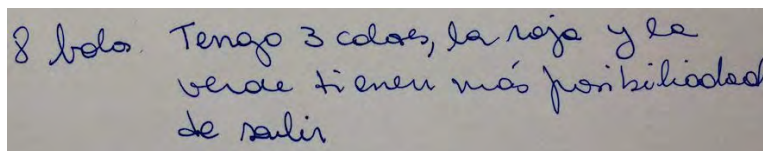 8 bolas. Tengo 3 colores, la roja y la
verde tienen más posibilidad
de salir